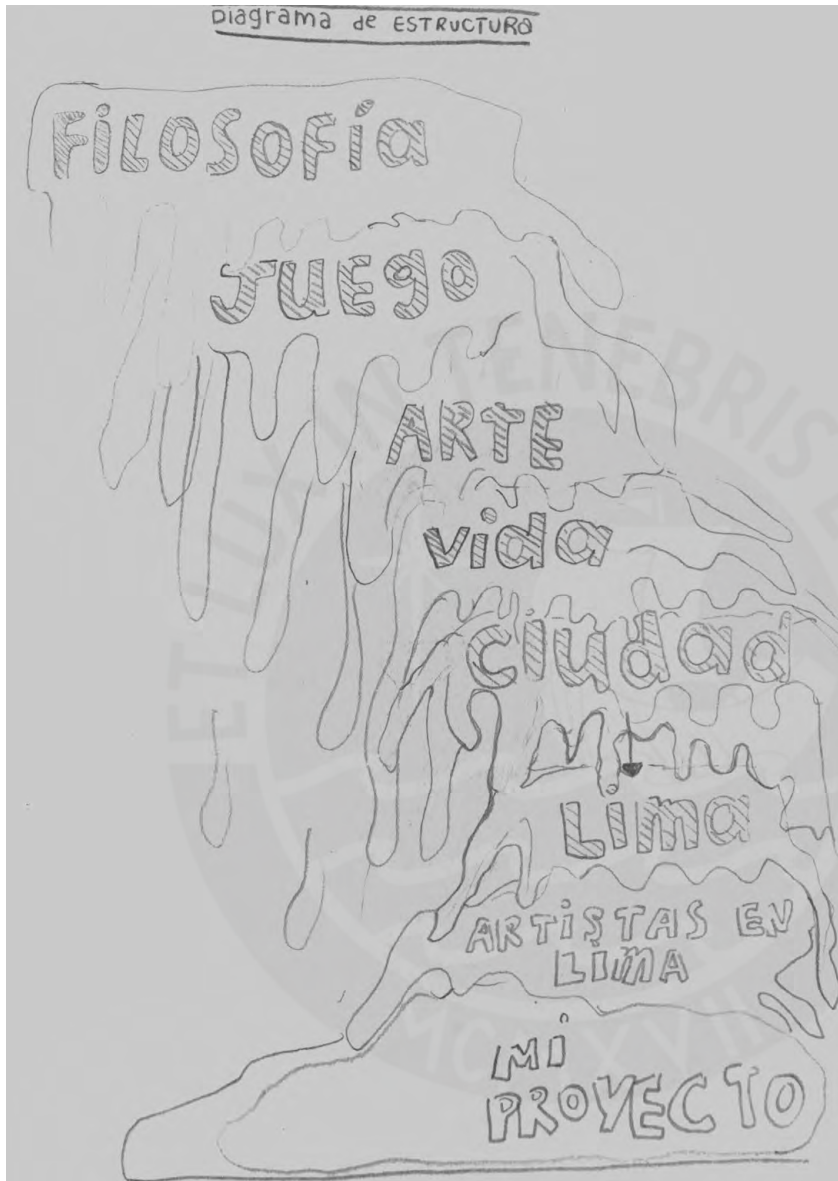 Diagrama de ESTRUCTURA
FiLOSOFía
JUEgO
ARTE
vida
ciudad
Lima
ARTiSTAS EN
LiMA
Mi
PROYECTO
ET LUX IN TENEBRIS